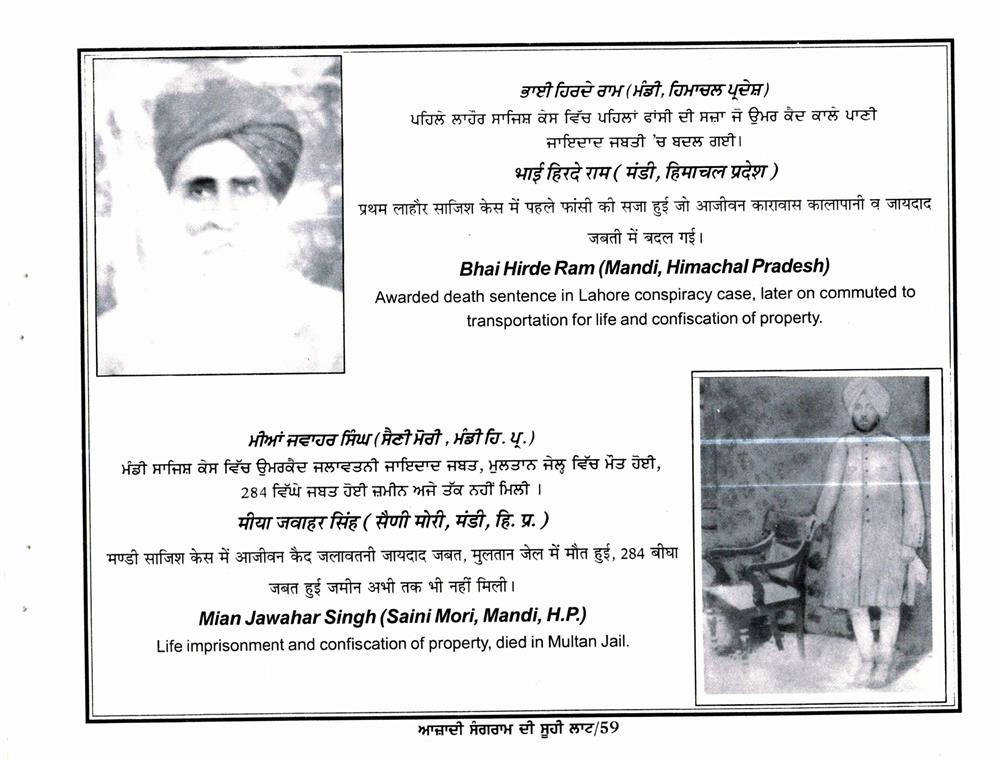 ਭਾਈ ਹਿਰਦੇ ਰਾਮ (ਮੰਡੀ, ਹਿਮਾਚਲ ਪ੍ਰਦੇਸ਼)
ਪਹਿਲੇ ਲਾਹੌਰ ਸਾਜਿਸ਼ ਕੇਸ ਵਿੱਚ ਪਹਿਲਾਂ ਫਾਂਸੀ ਦੀ ਸਜ਼ਾ ਜੋ ਉਮਰ ਕੈਦ ਕਾਲੇ ਪਾਣੀ
ਜਾਇਦਾਦ ਜਬਤੀ 'ਚ ਬਦਲ ਗਈ।
भाई हिरदे राम ( मंडी, हिमाचल प्रदेश )
प्रथम लाहौर साजिश केस में पहले फांसी की सजा हुई जो आजीवन कारावास कालापानी व जायदाद
जबती में बदल गई।
Bhai Hirde Ram (Mandi, Himachal Pradesh)
Awarded death sentence in Lahore conspiracy case, later on commuted to
transportation for life and confiscation of property.
ਮੀਆਂ ਜਵਾਹਰ ਸਿੰਘ (ਸੈਣੀ ਮੋਰੀ , ਮੰਡੀ ਹਿ. ਪ੍ਰ.)
ਮੰਡੀ ਸਾਜਿਸ਼ ਕੇਸ ਵਿੱਚ ਉਮਰਕੈਦ ਜਲਾਵਤਨੀ ਜਾਇਦਾਦ ਜਬਤ, ਮੁਲਤਾਨ ਜੇਲ੍ਹ ਵਿੱਚ ਮੌਤ ਹੋਈ,
284 ਵਿੱਘੇ ਜਬਤ ਹੋਈ ਜ਼ਮੀਨ ਅਜੇ ਤੱਕ ਨਹੀਂ ਮਿਲੀ ।
मीया जवाहर सिंह ( सैणी मोरी, मंडी, हि. प्र. )
मण्डी साजिश केस में आजीवन कैद जलावतनी जायदाद जबत, मुलतान जेल में मौत हुई, 284 बीघा
जबत हुई जमीन अभी तक भी नहीं मिली।
Mian Jawahar Singh (Saini Mori, Mandi, H.P.)
Life imprisonment and confiscation of property, died in Multan Jail.
ਆਜ਼ਾਦੀ ਸੰਗਰਾਮ ਦੀ ਸੂਹੀ ਲਾਟ/59